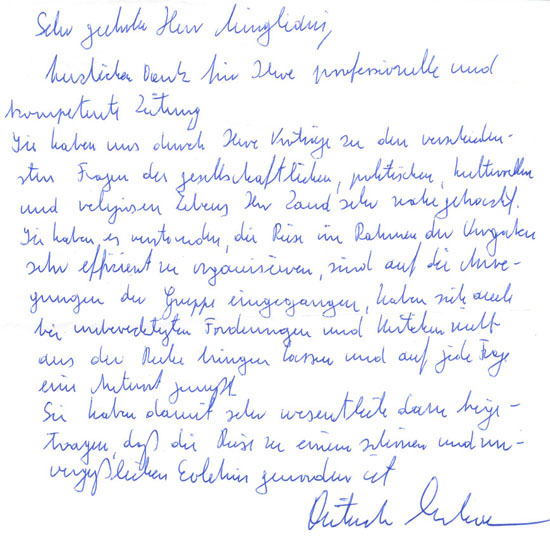 Sehr geehrter Herr
herzlichen Dank für Ihre professionelle und
kompetente Leitung
Sie haben uns durch Ihre Vorträge zu den verschieden-
sten Fragen des gesellschaftlichen, politischen, kulturellen
und religiösen Lebens Ihr Land sehr nahe gebracht.
Sie haben es verstanden, die Reise im Rahmen der Vorgaben
sehr effizient zu organisieren, sind auf die Anre-
gungen der Gruppe eingegangen, haben sich auch
bei unberechtigten Forderungen und Kritiken nicht
aus der Ruhe bringen lassen und auf jede Frage
eine Antwort gewußt.
Sie haben damit sehr wesentlich dazu beige-
tragen, daß die Reise zu einem schönen und un-
vergeßlichen Erlebnis geworden ist